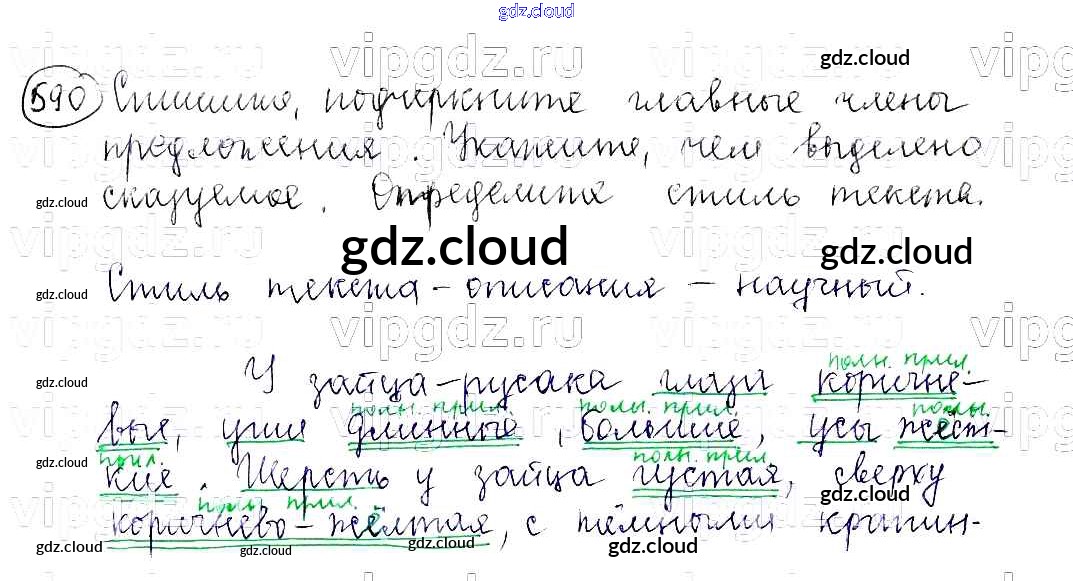 gdz.cloud
590 Спишите, подчеркните главные члены
предложения. Укажите, чем выделено
сказуемое. Определите стиль текста.
Стиль текста-описания - научный.
полн. прил.
У зайца-русака глаза коричне-
полн. прил. полн. прил. полн.
вые, уши длинные, большие, усы жёст-
прил. полн. прил.
кие. Шерсть у зайца густая, сверху
полн. прил.
коричнево-жёлтая, с тёмными крапин-
vipgdz.ru
vipgdz.ru
gdz.cloud
gdz.cloud
gdz.cloud
gdz.cloud
gdz.cloud
vipgdz.ru
vipgdz.ru
gdz.cloud
gdz.cloud
gdz.cloud
gdz.cloud
gdz.cloud
gdz.cloud